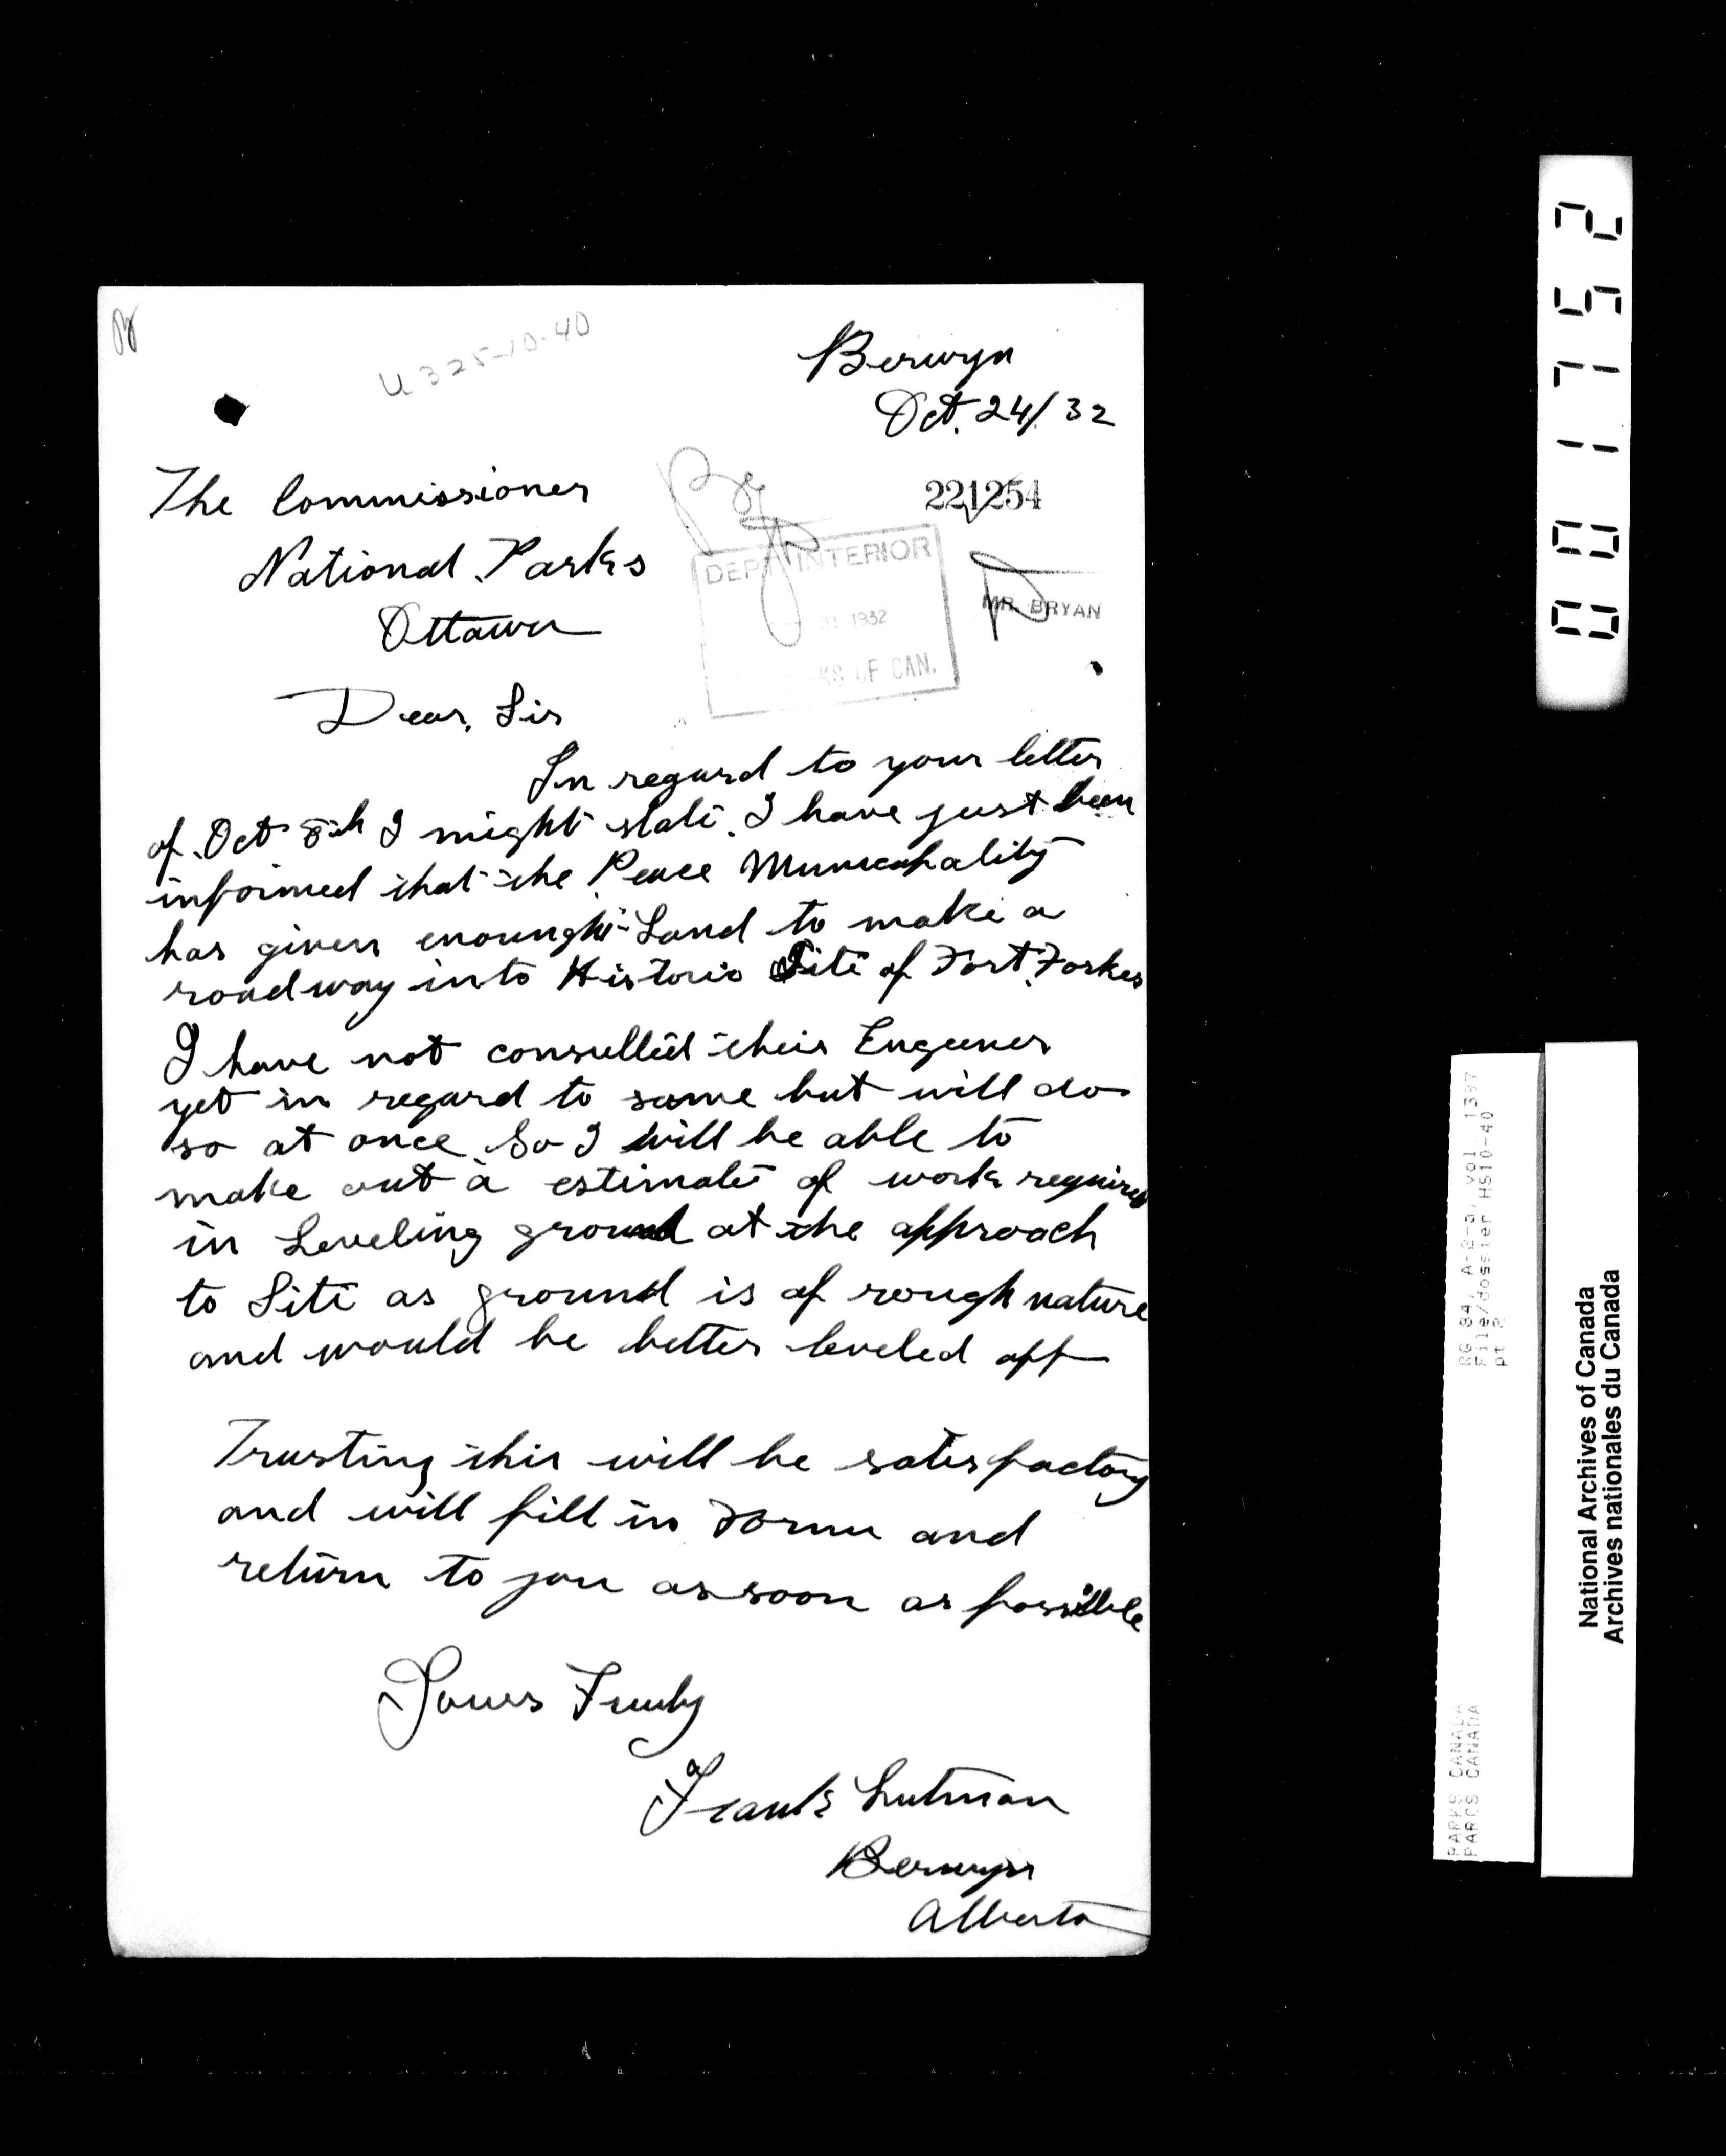 U 325-10-40
Berwyn
Oct. 24/32
The Commissioner
National Parks
Ottawa
221254
DEPT. INTERIOR
31 1932
KS OF CAN.
MR. BRYAN
Dear, Sir
In regard to your letter
of Oct 8th I might state. I have just been
informed that the Peace Municipality
has given enoungh Land to make a
roadway into Historic Site of Fort Forkes
I have not consulted their Engeener
yet in regard to same but will do
so at once So I will be able to
make out a estimate of work required
in Leveling ground at the approach
to Site as ground is of rough nature
and would be better leveled off
Trusting this will be satisfactory
and will fill in Form and
return to you as soon as possible
Yours Truly
Frank Lutman
Berwyn
Alberta
001752
RG 84, A-2-a, vol. 1397
File/dossier HS10-40
pt 2
PARKS CANADA
PARCS CANADA
National Archives of Canada
Archives nationales du Canada